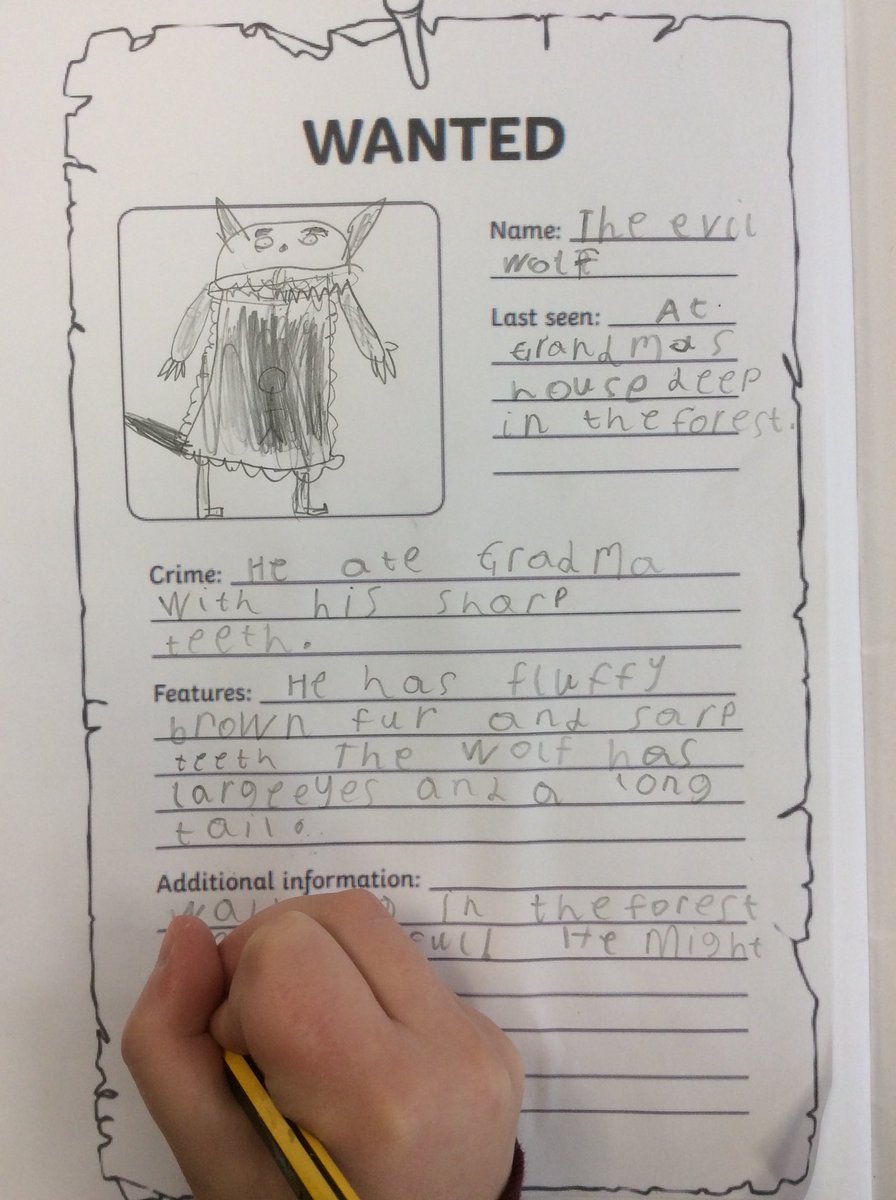 WANTED
Name: The evil
wolf
Last seen: At.
Grandmas
house deep
in the forest.
Crime: He ate Gradma
with his sharp
teeth.
Features: He has fluffy
brown fur and sarp
teeth The wolf has
large eyes and a long
tail.
Additional information:
in the forest
He Might